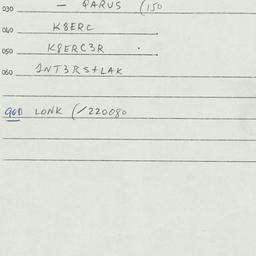 030 — QARUS (150
040 K8ERC
050 K8ERC3R
060 INT3RS+LAK
GOD LONK (/220080